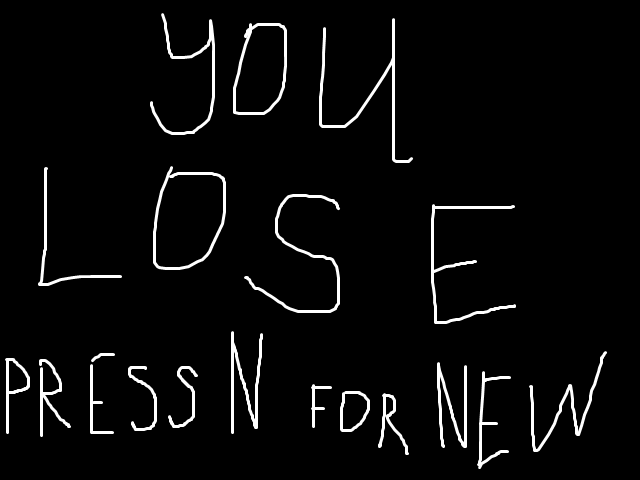 YOU
LOSE
PRESS N FOR NEW